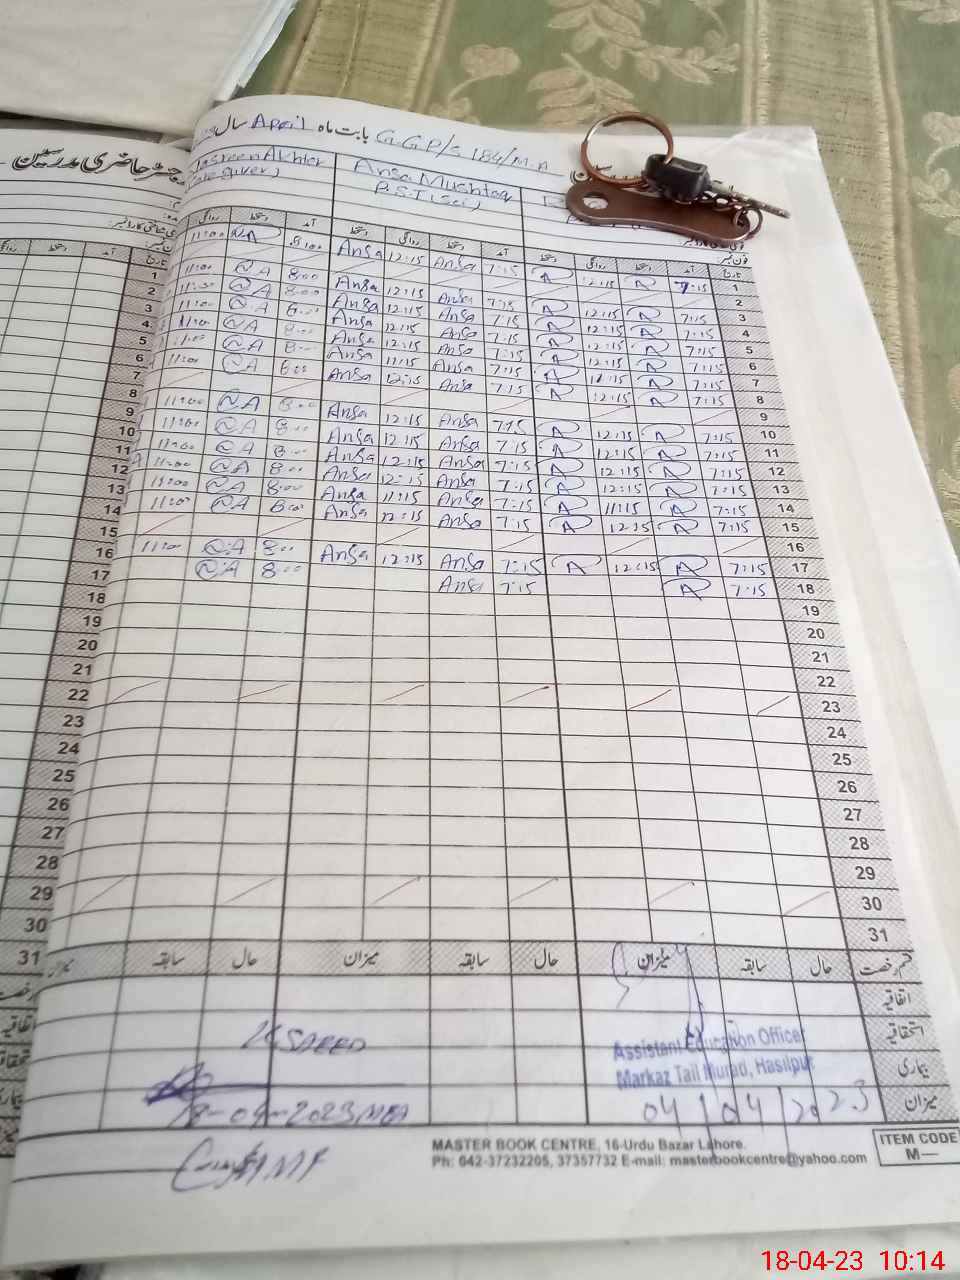 رجسٹر حاضری مدرسین
سال April بابت ماہ G.G.P/S 184/M.A
Nasreen Akhter
Ansa Mushtaq
(Care giver)
P.S.T (Sci)
روانگی دستخط آمد روانگی دستخط آمد روانگی دستخط آمد تاریخ
11:00 N.A 8:00 Ansa 12:15 Ansa 7:15 A 12:15 A 7:15 1
2
11:00 N.A 8:00 Ansa 12:15 Ansa 7:15 A 12:15 A 7:15 3
11:00 N.A 8:00 Ansa 12:15 Ansa 7:15 A 12:15 A 7:15 4
11:00 N.A 8:00 Ansa 12:15 Ansa 7:15 A 12:15 A 7:15 5
11:00 N.A 8:00 Ansa 12:15 Ansa 7:15 A 12:15 A 7:15 6
11:00 N.A 8:00 Ansa 11:15 Ansa 7:15 A 7:15 7
11:00 N.A 8:00 Ansa 12:15 Ansa 7:15 A 12:15 A 7:15 8
9
11:00 N.A 8:00 Ansa 12:15 Ansa 7:15 A 12:15 A 7:15 10
11:00 N.A 8:00 Ansa 12:15 Ansa 7:15 A 12:15 A 7:15 11
11:00 N.A 8:00 Ansa 12:15 Ansa 7:15 A 12:15 A 7:15 12
11:00 N.A 8:00 Ansa 12:15 Ansa 7:15 A 12:15 A 7:15 13
11:00 N.A 8:00 Ansa 11:15 Ansa 7:15 A 11:15 A 7:15 14
11:00 N.A 8:00 Ansa 12:15 Ansa 7:15 A 12:15 A 7:15 15
16
11:00 N.A 8:00 Ansa 12:15 Ansa 7:15 A 12:15 A 7:15 17
N.A 8:00 Ansa 7:15 A 7:15 18
19
20
21
22
23
24
25
26
27
28
29
30
31
میزان سابقہ حال میزان سابقہ حال میزان سابقہ حال قسم رخصت
اتفاقیہ
استحقاقیہ
بیماری
میزان
K SAEED
18-04-2023 MEA
Assistant Education Officer
Markaz Tail Murad, Hasilpur
04/04/2023
MASTER BOOK CENTRE, 16-Urdu Bazar Lahore.
Ph: 042-37232205, 37357732 E-mail: masterbookcentre@yahoo.com
ITEM CODE
M—
18-04-23 10:14